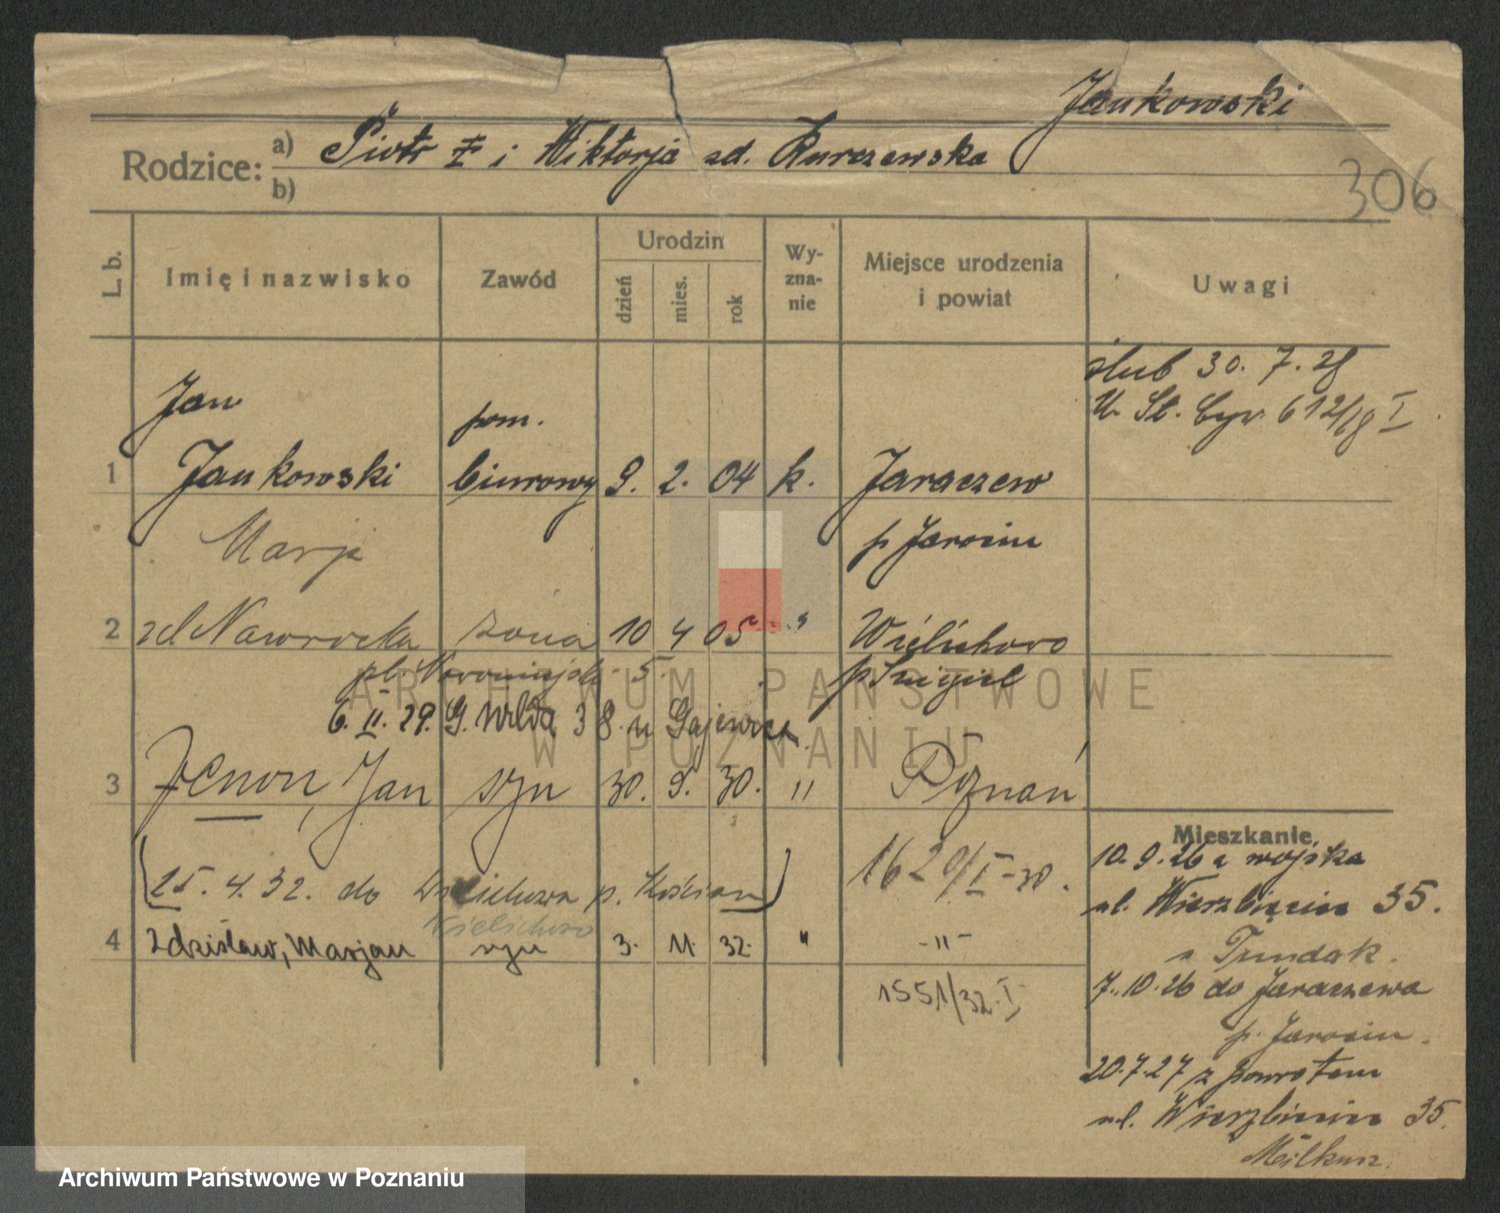 Jankowski
Rodzice: a) Piotr i Wiktorja zd. Kurczewska
b)
306
L. b. Imię i nazwisko Zawód Urodzin dzień mies. rok Wy-zna-nie Miejsce urodzenia i powiat Uwagi
ślub 30. 7. 28
U. St. Cyw. 612/28 I
Jan pom.
1 Jankowski biurowy 9. 2. 04 k. Jaraczew
Marja p. Jarocin
2 zd Nawrocka żona 10 4 05 " Wielichowo
pl. Nowomiejski 5. p Śmigiel
6. II. 29. G. Wilda 38 u Gajewicz
3 Zenon, Jan syn 30. 9. 30. " Poznań
(25. 4. 32. do Wielichowa p. Kościan) 1629/I-30.
Wielichowo
4 Zdzisław, Marjan syn 3. 11. 32. " -"-
1551/32 I
Mieszkanie
10. 9. 26 z wojska
ul. Wierzbięcice 35.
7. 10. 26 do Jaraczewa
p. Jarocin.
20. 7. 27 z powrotem
ul. Wierzbięcice 35.
ARCHIWUM PAŃSTWOWE
W POZNANIU
Archiwum Państwowe w Poznaniu